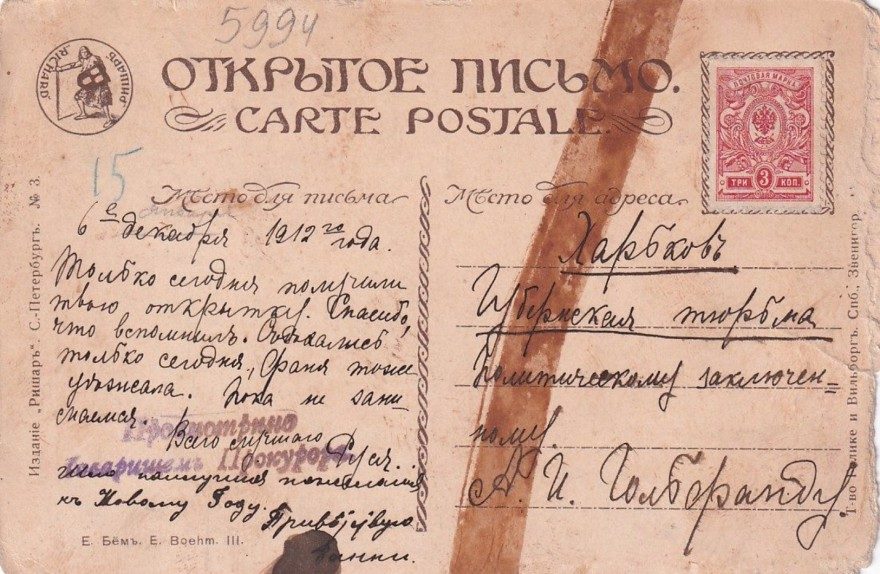 5994
РИШАРЪ. RICHARD.
ОТКРЫТОЕ ПИСЬМО.
CARTE POSTALE.
ПОЧТОВАЯ МАРКА
ТРИ 3 КОП.
15
Мѣсто для письма
6го декабря 1912 го года.
Только сегодня получили
твою открытку. Спасибо,
что вспомнилъ. Съѣхались
только сегодня, Франя тоже
уѣзжала. Пока не зани-
маемся.
Всего лучшаго
Просмотрѣно
Товарищемъ Прокурора
наилучшія пожеланія
къ Новому Году.
Мѣсто для адреса
Харьковъ
Губернская тюрьма
Политическому заключен-
ному.
А. И. Гольбранду
Изданіе „Ришаръ“. С.-Петербургъ. № 3.
Е. Бёмъ. E. Boehm. III.
Т-во Голике и Вильборгъ. Спб., Звенигор.